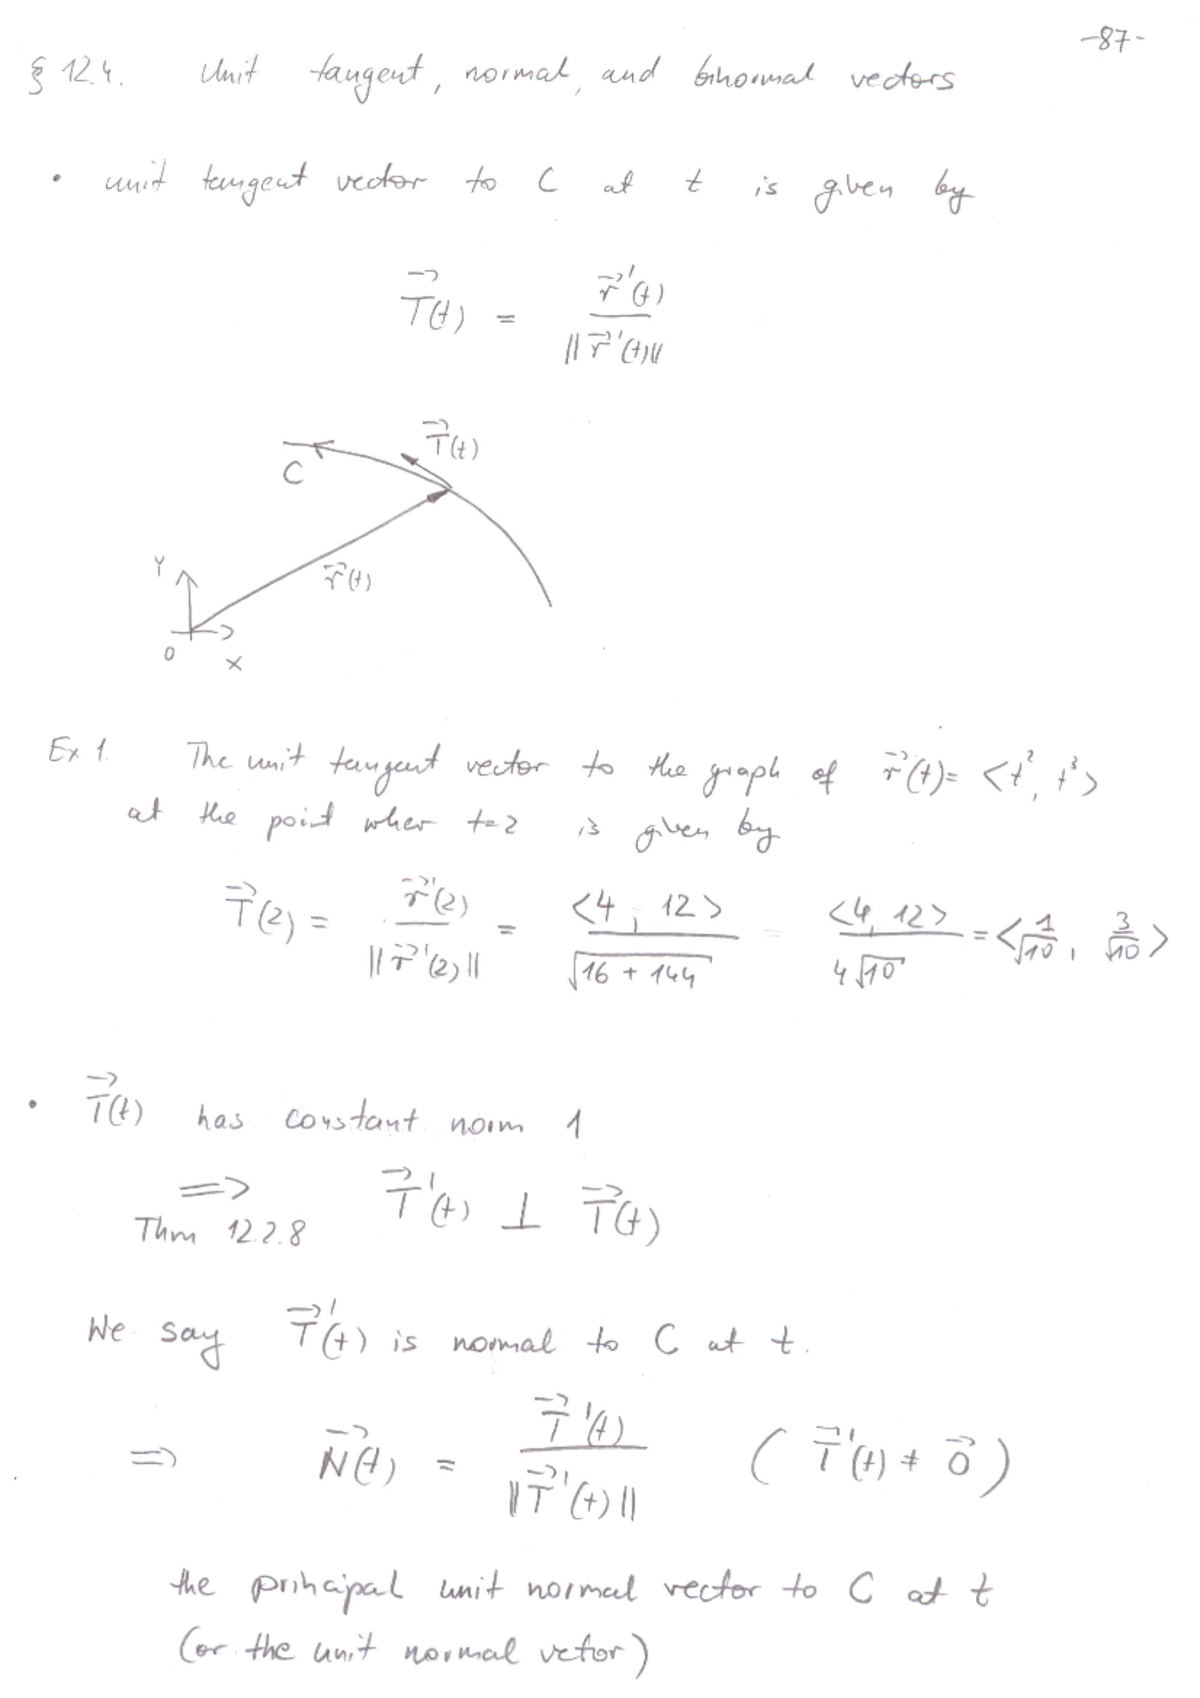 -87-
§ 12.4. Unit tangent, normal, and binormal vectors
• unit tangent vector to C at t is given by
T⃗(t) = r⃗'(t) / ||r⃗'(t)||
T⃗(t)
C
Y
r⃗(t)
O
X
Ex 1. The unit tangent vector to the graph of r⃗(t) = <t², t³>
at the point wher t=2 is given by
T⃗(2) = r⃗'(2) / ||r⃗'(2)|| = <4, 12> / √(16 + 144) = <4, 12> / 4√10 = <1/√10, 3/√10>
• T⃗(t) has constant norm 1
=> T⃗'(t) ⊥ T⃗(t)
Thm 12.2.8
We say T⃗'(t) is normal to C at t.
=> N⃗(t) = T⃗'(t) / ||T⃗'(t)|| ( T⃗'(t) ≠ 0⃗ )
the principal unit normal vector to C at t
(or the unit normal vetor)